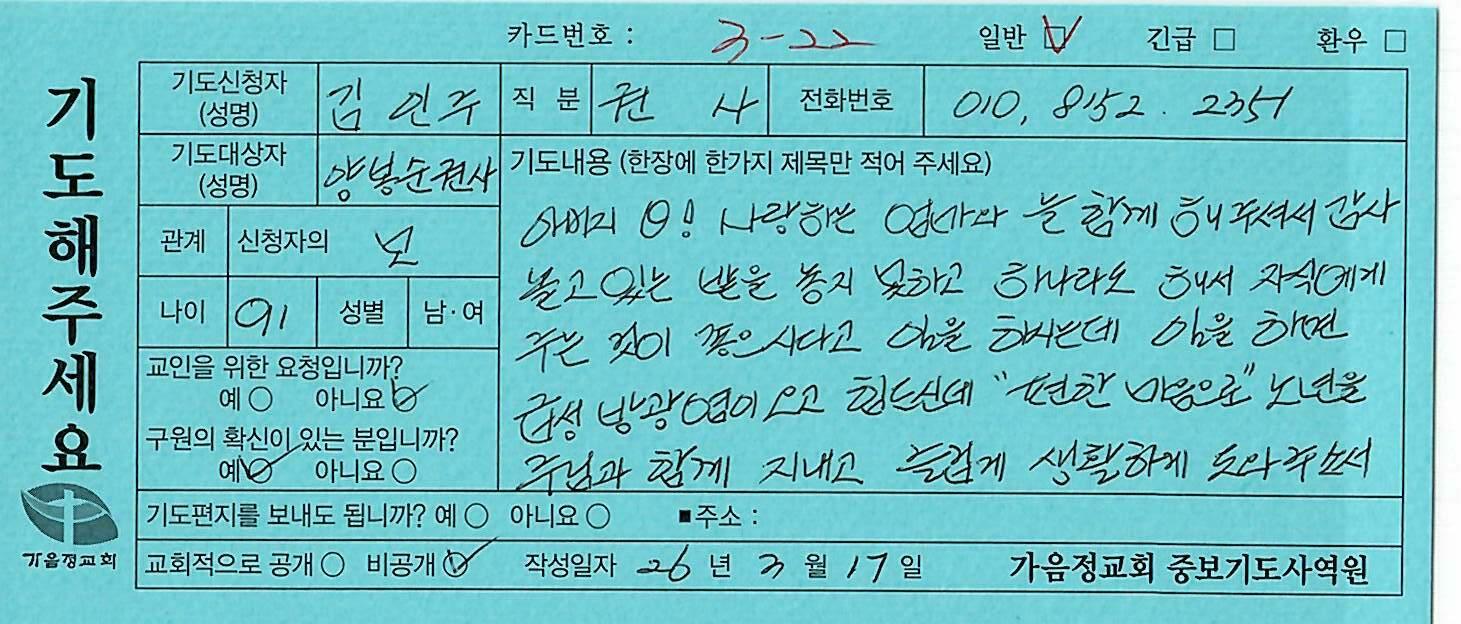 카드번호 : 3-22 일반 ☑ 긴급 □ 환우 □
기도해주세요
기도신청자 (성명) 김인주 직 분 권 사 전화번호 010. 8152. 2351
기도대상자 (성명) 양봉순권사
관계 신청자의 모
나이 91 성별 남·여
교인을 위한 요청입니까?
예 ○ 아니요 ☑
구원의 확신이 있는 분입니까?
예 ☑ 아니요 ○
기도내용 (한장에 한가지 제목만 적어 주세요)
아버지 ! 사랑하는 엄마와 늘 함께 해주셔서 감사
놀고 있는 밭을 놓지 못하고 하나라도 해서 자식에게
주는 것이 좋으시다고 일을 하시는데 일을 하면
급성 방광염이 오고 힘드신데 "편한 마음으로" 노년을
주님과 함께 지내고 즐겁게 생활하게 도와주소서
기도편지를 보내도 됩니까? 예 ○ 아니요 ○ ■주소 :
교회적으로 공개 ○ 비공개 ☑ 작성일자 26 년 3 월 17 일 가음정교회 중보기도사역원
가음정교회